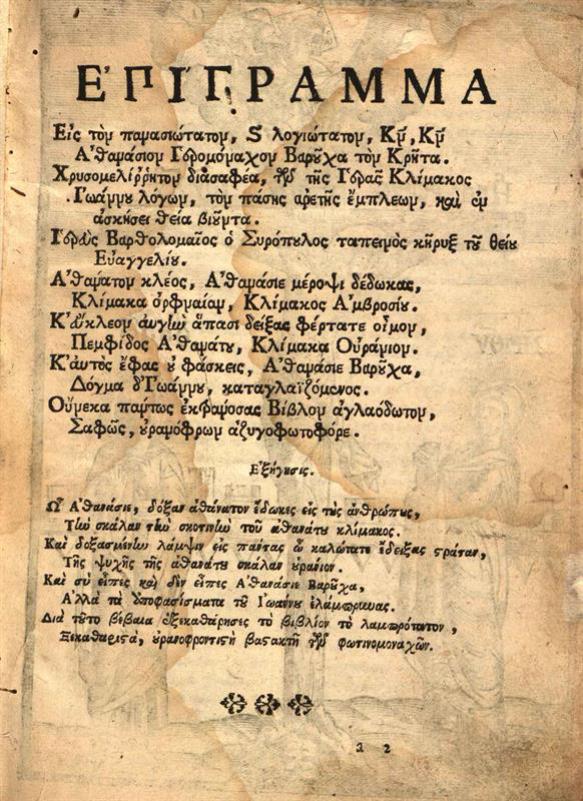 ΕΠΙΓΡΑΜΜΑ
Εἰς τὸν πανοσιώτατον, ϗ λογιώτατον, Κῦ, Κῦ
Ἀθανάσιον Ἱερομόναχον Βαρῦχα τὸν Κρῆτα.
Χρυσομελίρρητον διασαφέα, τῶν τῆς Ἱερᾶς Κλίμακος
Ἰωάννου λόγων, τὸν πάσης ἀρετῆς ἔμπλεων, καὶ ἐν
ἀσκήσει θείᾳ βιοῦντα.
Ἱερεὺς Βαρθολομαῖος ὁ Συρόπυλος ταπεινὸς κῆρυξ τοῦ θείου
Εὐαγγελίου.
Ἀθάνατον κλέος, Ἀθανάσιε μέροψι δέδωκας,
Κλίμακα ὀρφναίαν, Κλίμακος Ἀμβροσίου.
Κ' εὔκλεον αὐγὴν ἅπασι δείξας φέρτατε οἶμον,
Πεμφίδος Ἀθανάτου, Κλίμακα Οὐράνιον.
Κ' αὐτὸς ἔφας οὐ φάσκεις, Ἀθανάσιε Βαροῦχα,
Δόγμα δ' Ἰωάννου, καταγλαϊζόμενος.
Οὕνεκα πάντως ἐκφανοσας Βίβλον ἀγλαόδωτον,
Σαφῶς, οὐρανόφρων ἀζυγοφωτοφόρε.
Ἐξήγησις.
Ὦ Ἀθανάσιε, δόξαν ἀθάνατον ἔδωκες εἰς τοὺς ἀνθρώπους,
Τὴν σκάλαν τὴν σκοτινὴν τοῦ ἀθανάτου κλίμακος.
Καὶ δοξασμένην λάμψιν εἰς πάντας ὦ καλώτατε ἔδειξας στράταν,
Τῆς ψυχῆς τῆς ἀθανάτου σκάλαν οὐράνιον.
Καὶ σὺ εἶπες καὶ δὲν εἶπες Ἀθανάσιε Βαροῦχα,
Ἀλλὰ τὰ ὑποφασίσματα τοῦ Ἰωάννου ἐλάμπρυνας.
Διὰ τοῦτο βέβαια ἐξεκαθάρησες τὸ βιβλίον τὸ λαμπρότατον,
Ξεκαθαριστά, οὐρανοφροντιστὴ βαστακτὴ τῶν φωτινομοναχῶν.
a 2